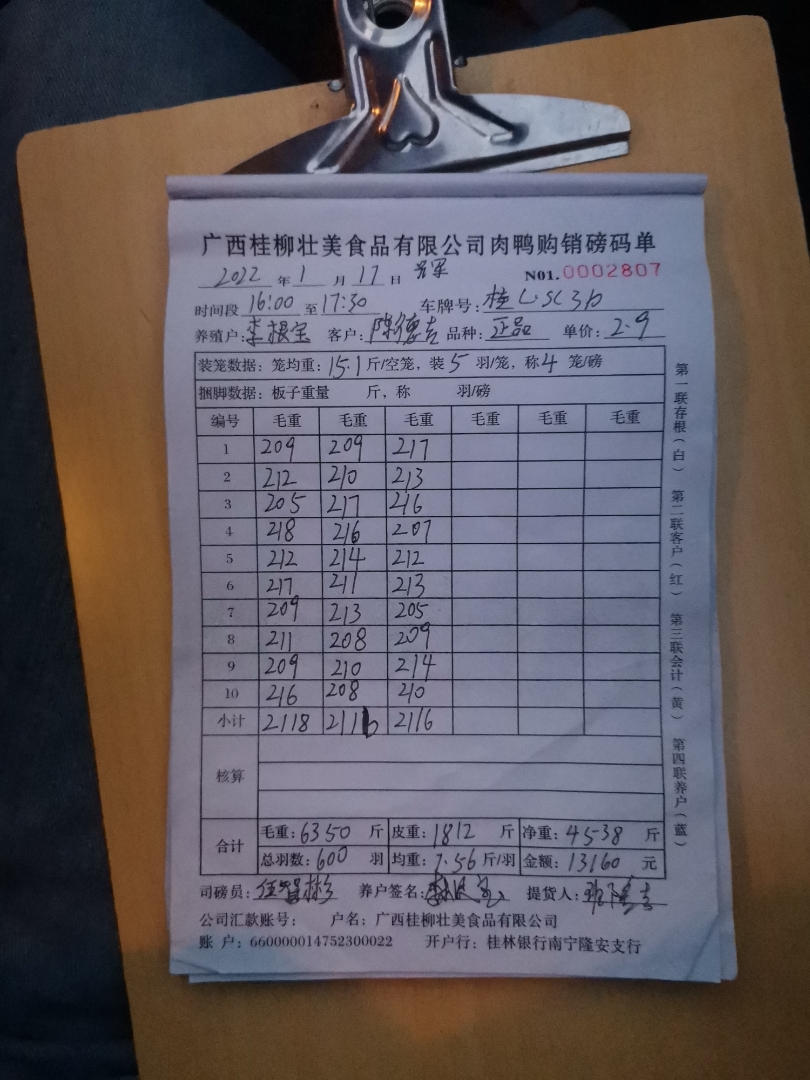 广西桂柳壮美食品有限公司肉鸭购销磅码单
2022 年 1 月 17 日 N01.0002807
时间段 16:00 至 17:30 车牌号: 桂
养殖户: 李根宝 客户: 陈德吉 品种: 正品 单价: 2.9
装笼数据: 笼均重: 15.1 斤/空笼, 装 5 羽/笼, 称 4 笼/磅
捆脚数据: 板子重量 斤, 称 羽/磅
编号 毛重 毛重 毛重 毛重 毛重 毛重
1 209 209 217
2 212 210 213
3 205 217 216
4 218 216 207
5 212 214 212
6 217 211 213
7 209 213 205
8 211 208 209
9 209 210 214
10 216 208 210
小计 2118 2116 2116
核算
合计 毛重: 6350 斤 皮重: 1812 斤 净重: 4538 斤
总羽数: 600 羽 均重: 7.56 斤/羽 金额: 13160 元
司磅员: 养户签名: 提货人:
公司汇款账号: 户名: 广西桂柳壮美食品有限公司
账 户: 660000014752300022 开户行: 桂林银行南宁隆安支行
第一联存根(白) 第二联客户(红) 第三联会计(黄) 第四联养户(蓝)